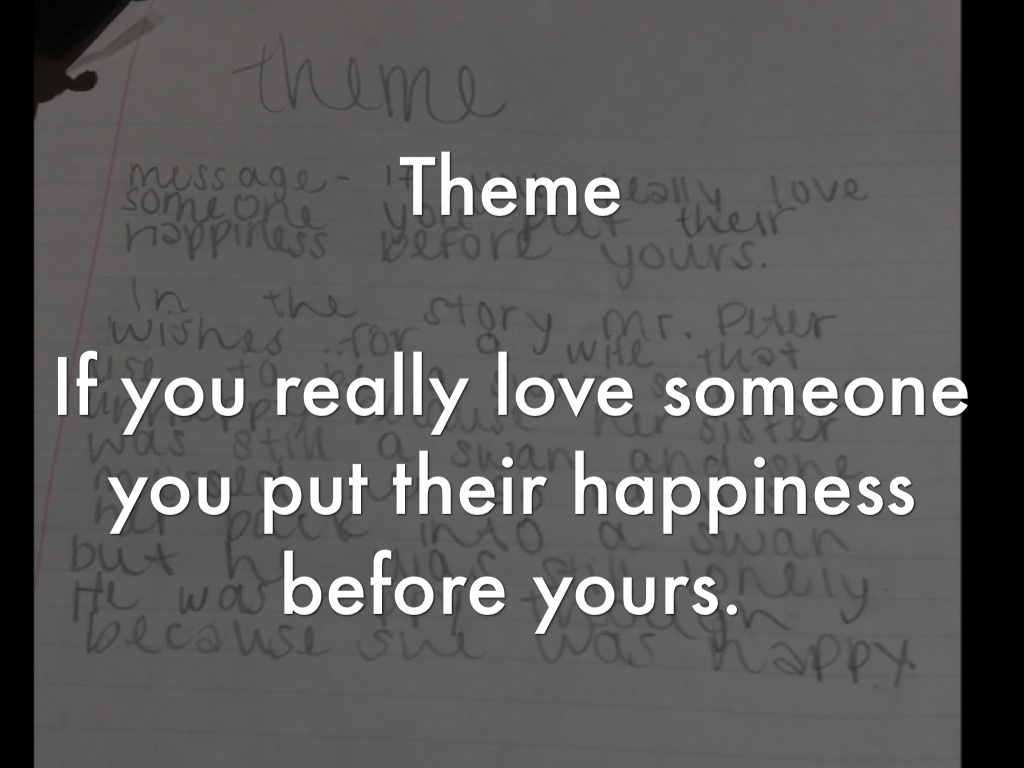 theme
Theme
message- If you really love
someone you put their
happiness before yours.
In the story Mr. Peter
wishes for a wife that
If you really love someone
use to be a
unhappy because her sister
was still a swan and she
you put their happiness
her back into a swan
but he was still lonely.
before yours.
He was though
because she was happy.